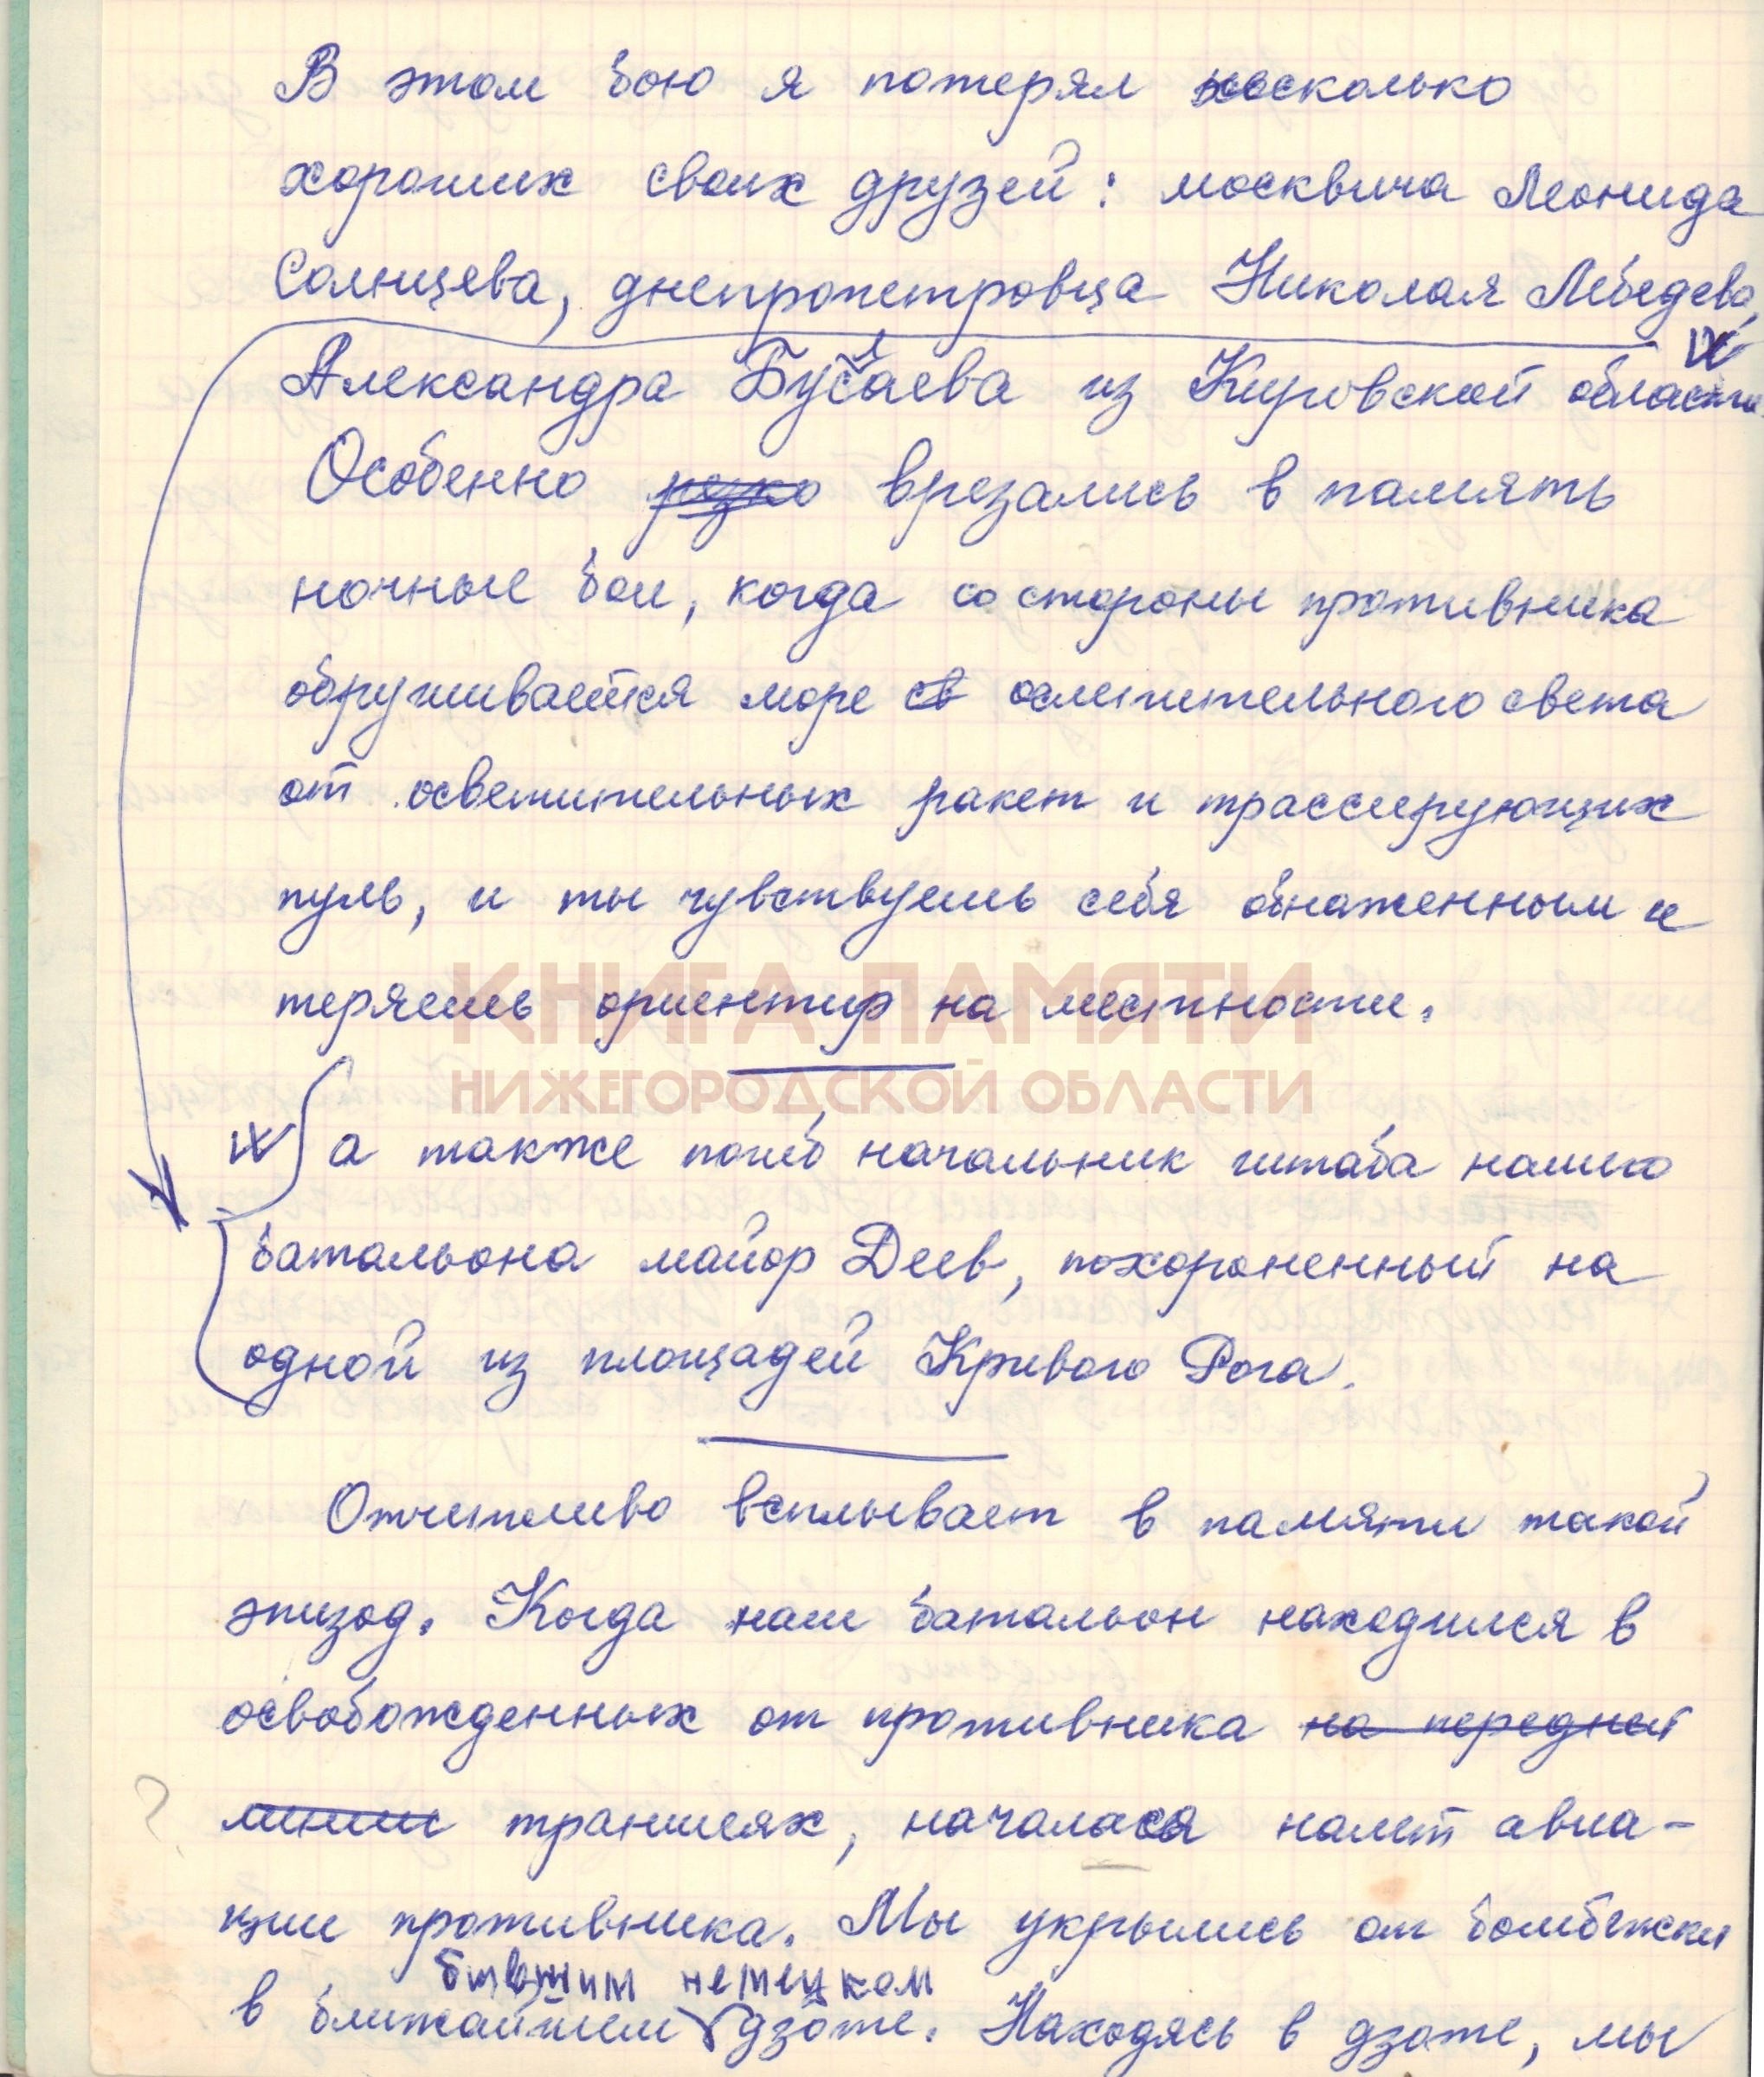 В этом бою я потерял несколько
хороших своих друзей: москвича Леонида
Солнцева, днепропетровца Николая Лебедева,
Александра Бусаева из Кировской области
Особенно резко врезались в память
ночные бои, когда со стороны противника
обрушивается море св ослепительного света
от осветительных ракет и трассирующих
пуль, и ты чувствуешь себя обнаженным и
теряешь ориентир на местности.
КНИГА ПАМЯТИ
НИЖЕГОРОДСКОЙ ОБЛАСТИ
а также погиб начальник штаба нашего
батальона майор Деев, похороненный на
одной из площадей Кривого Рога.
Отчетливо всплывает в памяти такой
эпизод. Когда наш батальон находился в
освобожденных от противника на передней
линии траншеях, началася налет авиа-
ции противника. Мы укрылись от бомбежки
бывшим немецком
в ближайшем дзоте. Находясь в дзоте, мы